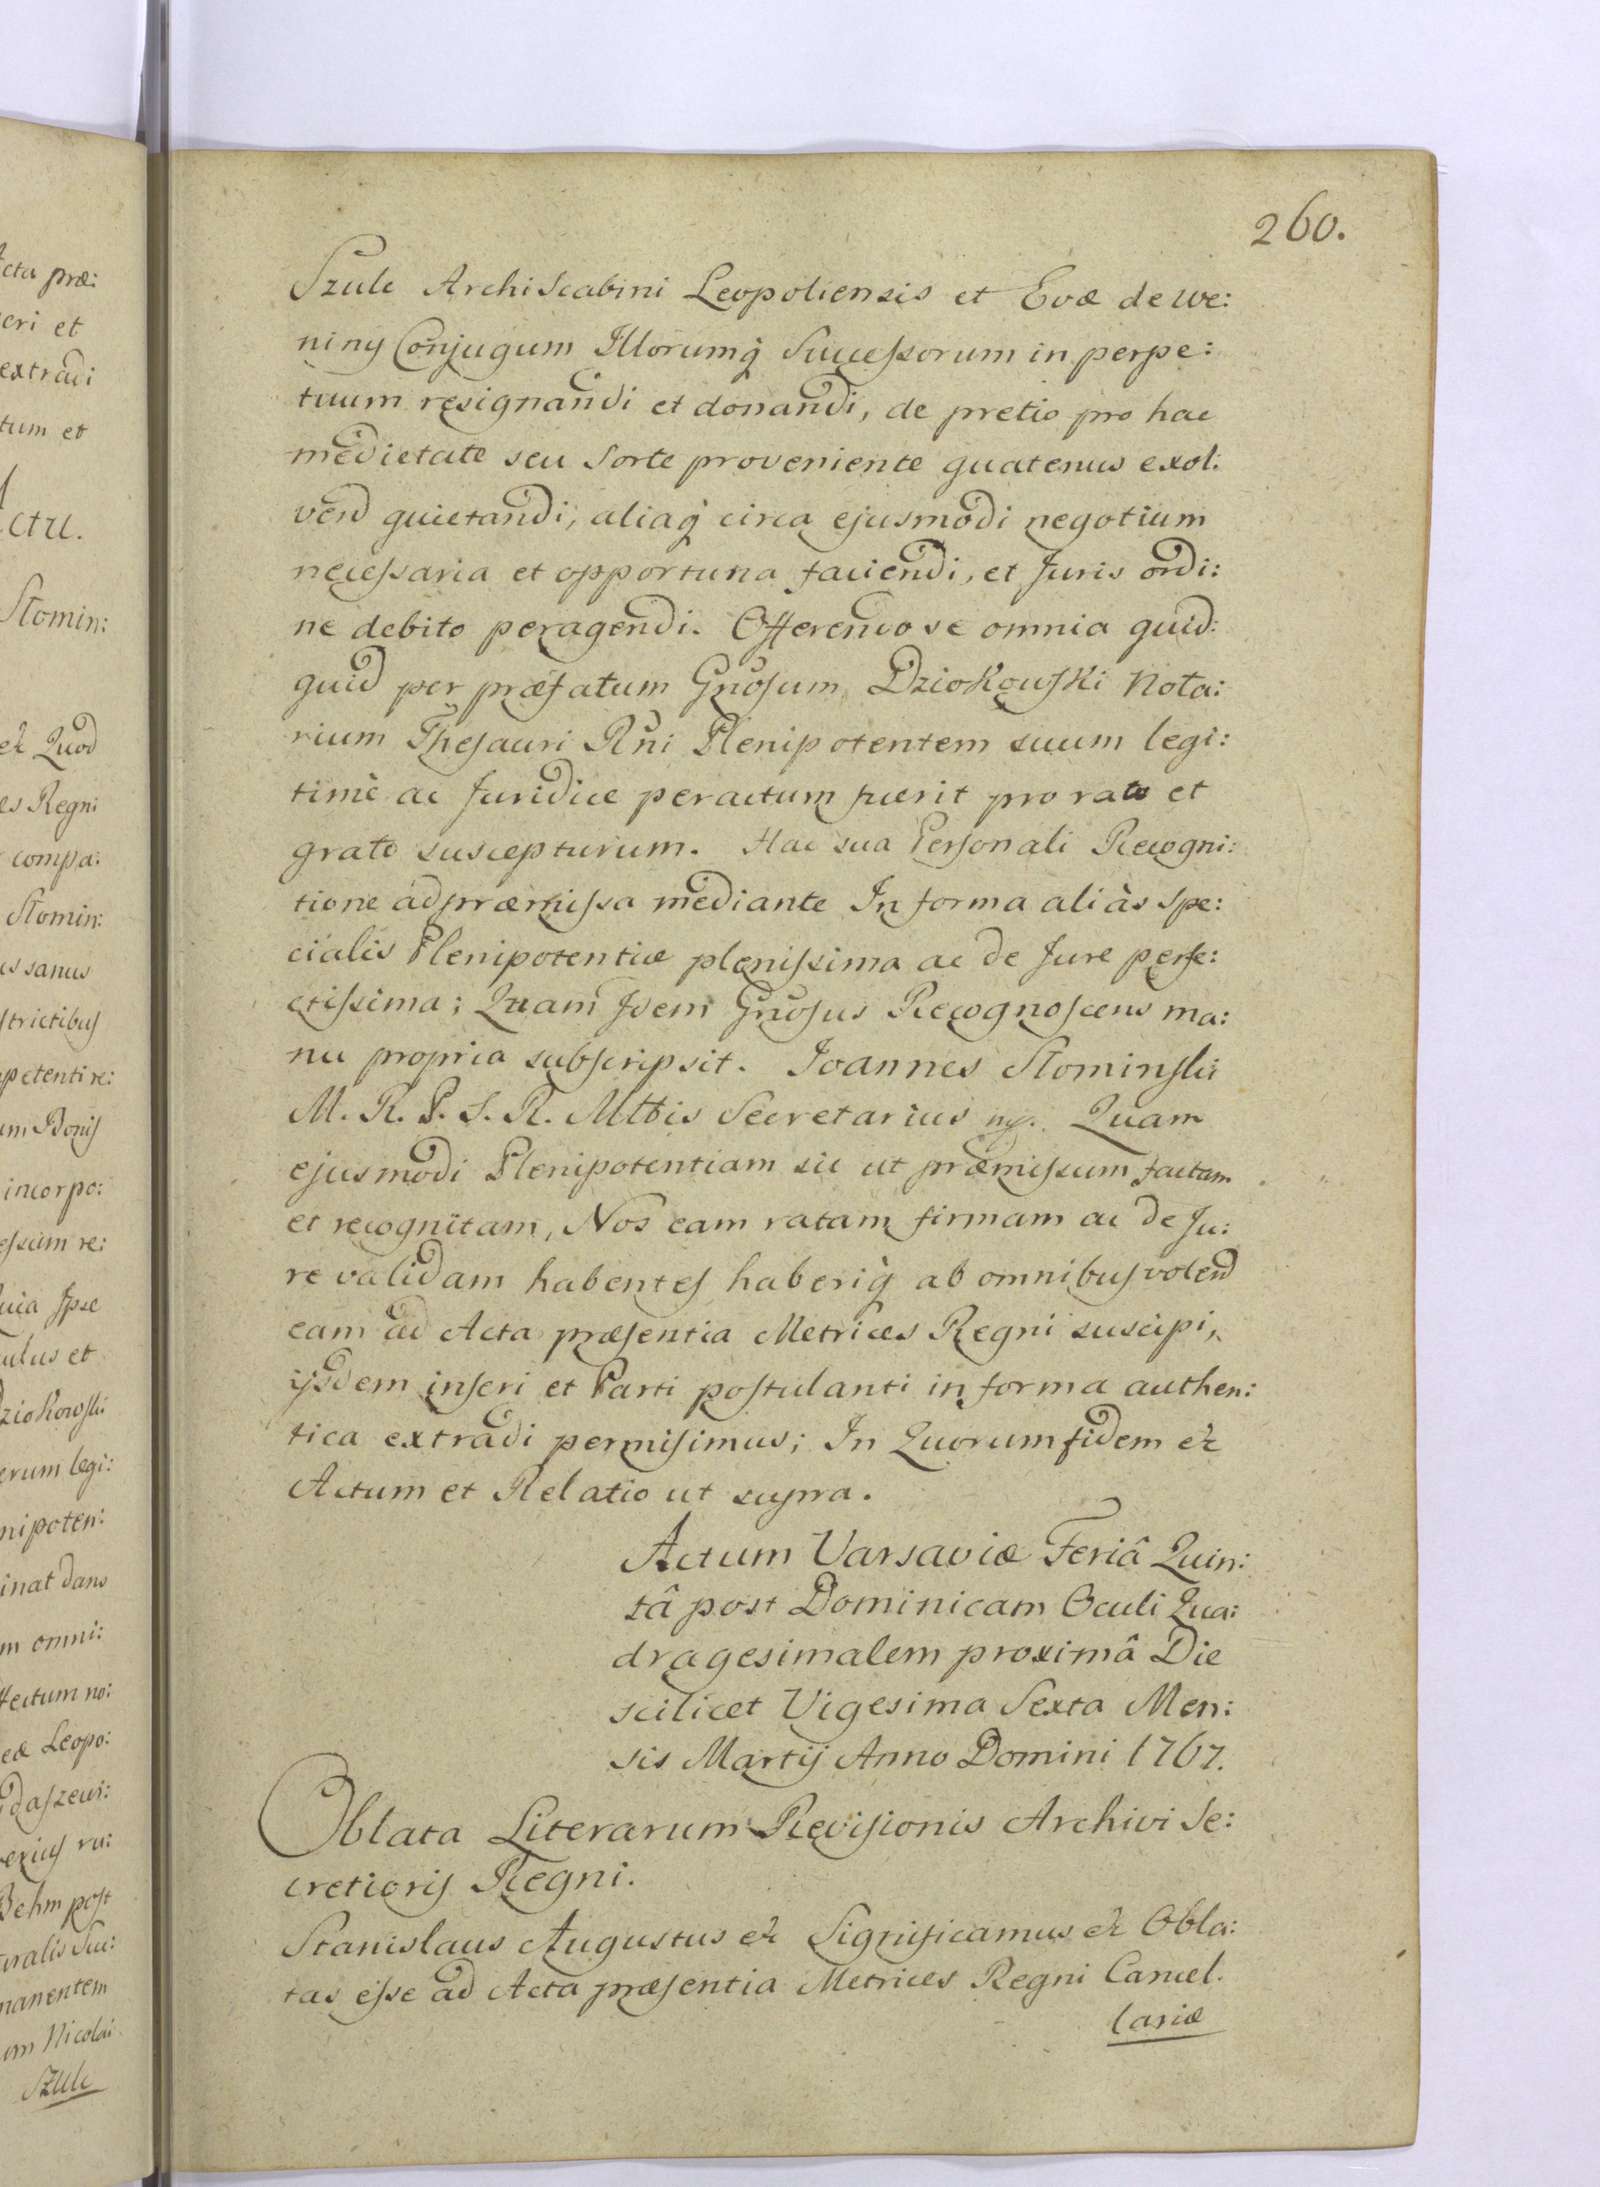 260.
Szulc Archiscabini Leopoliensis et Evæ de We:
niny Conjugum Illorumq̀ Successorum in perpe:
tuum resignandi et donandi, de pretio pro hac
medietate seu Sorte proveniente quatenus exol:
vend quietandi, aliaq̀ circa ejusmodi negotium
necessaria et opportuna faciendi, et Juris ordi:
ne debito peragendi. Offerendo se omnia quid:
quid per præfatum Gñosum Dziokowski Nota:
rium Thesauri Rñi Plenipotentem suum legi:
timè ac Juridice peractum fuerit pro rato et
grato suscepturum. Hac sua Personali Recogni:
tione ad præmissa mediante In forma aliàs Spe:
cialis Plenipotentiæ plenissima ac de Jure perfe:
ctissima; Quam Idem Gñosus Recognoscens ma:
nu propria subscripsit. Joannes Słominski
M. R. P. S. R. Mttis Secretarius mp. Quam
ejusmodi Plenipotentiam sic ut præmissum factam
et recognitam, Nos eam ratam firmam ac de Ju:
re validam habentes haberiq̀ ab omnibus volend
eam ad Acta præsentia Metrices Regni suscipi,
ijsdem inseri et Parti postulanti in forma authen:
tica extradi permisimus; In Quorum fidem &
Actum et Relatio ut supra.
Actum Varsaviæ Feriâ Quin:
tâ post Dominicam Oculi Qua:
dragesimalem proximâ Die
scilicet Vigesima Sexta Men:
sis Martij Anno Domini 1767.
Oblata Literarum Revisionis Archivi Se:
cretioris Regni.
Stanislaus Augustus & Significamus & Obla:
tas esse ad Acta præsentia Metrices Regni Cancel:
lariæ